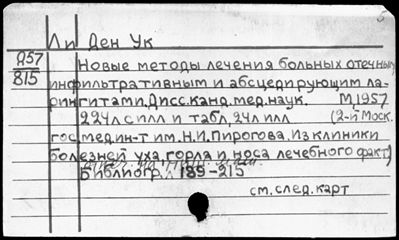 Ли Ден Ук
Д57
815
Новые методы лечения больных отечным,
инфильтративным и абсцедирующим ла-
рингитами. Дисс. канд. мед. наук. М., 1957
224л с илл и табл, 24л илл (2-й Моск.
гос мед. ин-т им. Н.И. Пирогова. Из клиники
болезней уха, горла и носа лечебного факт)
Библиогр. л 189-215
см. след. карт